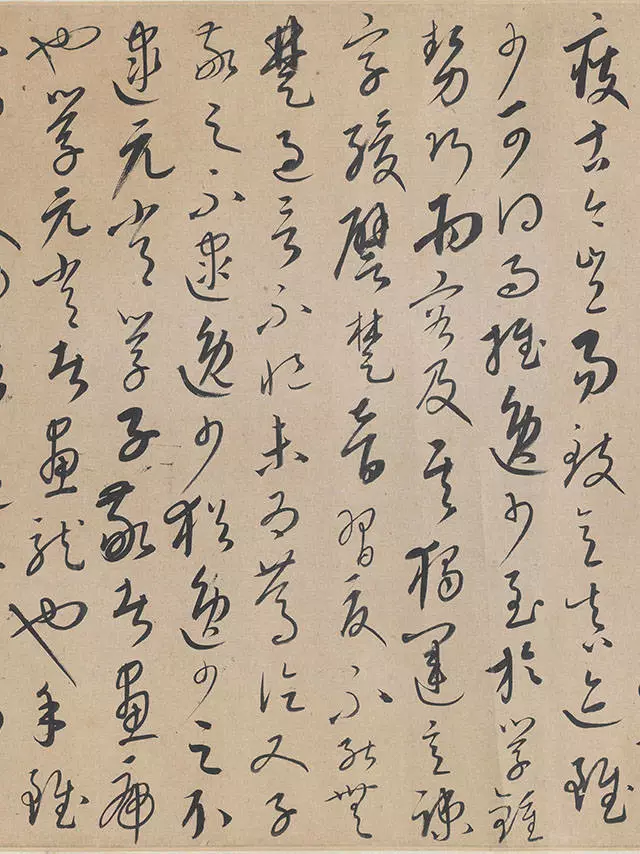 瘦古今豈易致意真迹雖
少可得而推逸少至於學鍾
勢巧而密及其獨運意疎
字緩譬楚音習夏不能無
楚過言不悒未為篤論又子
敬之不逮逸少猶逸少之不
逮元常學子敬者畫虎
也學元常者畫龍也手雖